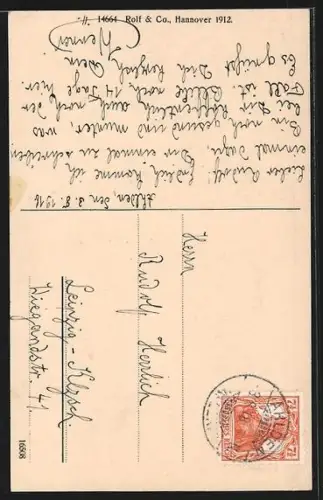 14664 Rolf & Co., Hannover 1912.
Ahlden, den 3.8.1916
Lieber Rudolf! Endlich komme ich
einmal dazu, Dir einmal zu schreiben.
Bin noch gesund und munter, was
bei Dir hoffentlich auch noch der
Fall ist. Bleibe noch 14 Tage hier.
Es grüßt Dich herzlich Dein
Werner
Herrn
Rudolf Herrlich
Leipzig-Klzsch.
Wiegandstr. 41.
AHLDEN
7½ 7½
DEUTSCHES REICH
16508